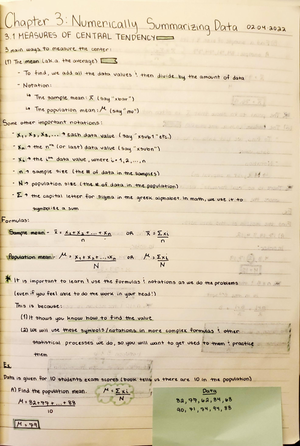 Chapter 3: Numerically Summarizing Data 02.04.2022
3.1 MEASURES OF CENTRAL TENDENCY
3 main ways to measure the center:
(1) The mean (a.k.a. the average)
- To find, we add all the data values & then divide by the amount of data
- Notation:
↳ The sample mean: x̄ (say "xbar")
↳ The population mean: μ (say "mu")
Some other important notations:
- x₁, x₂, x₃, ... : Each data value (say "xsub1" etc.)
- xₙ : the nᵗʰ (or last) data value (say "xsubn")
- xᵢ : the iᵗʰ data value, where i = 1, 2, ..., n
- n : sample size (the # of data in the samples)
- N : population size (the # of data in the population)
- Σ : the capital letter for sigma in the greek alphabet. In math, we use it to
symbolize a sum
Formulas:
Sample mean: x̄ = x₁+x₂+...+xₙ / n OR x̄ = Σxᵢ / n
Population mean: μ = x₁+x₂+...+xₙ / N OR μ = Σxᵢ / N
* It is important to learn & use the formulas & notations as we do the problems
(even if you feel able to do the work in your head!)
This is because:
(1) It shows you know how to find the value
(2) We will use these symbols/notations in more complex formulas & other
statistical processes we do, so you will want to get used to them & practice
them
Ex.
Data is given for 10 students exam scores (book tells us there are 10 in the population)
a) Find the population mean. μ = Σxᵢ / N
μ = 82+77+...+88 / 10
μ = 79
Data
82, 77, 62, 84, 68
90, 71, 94, 88